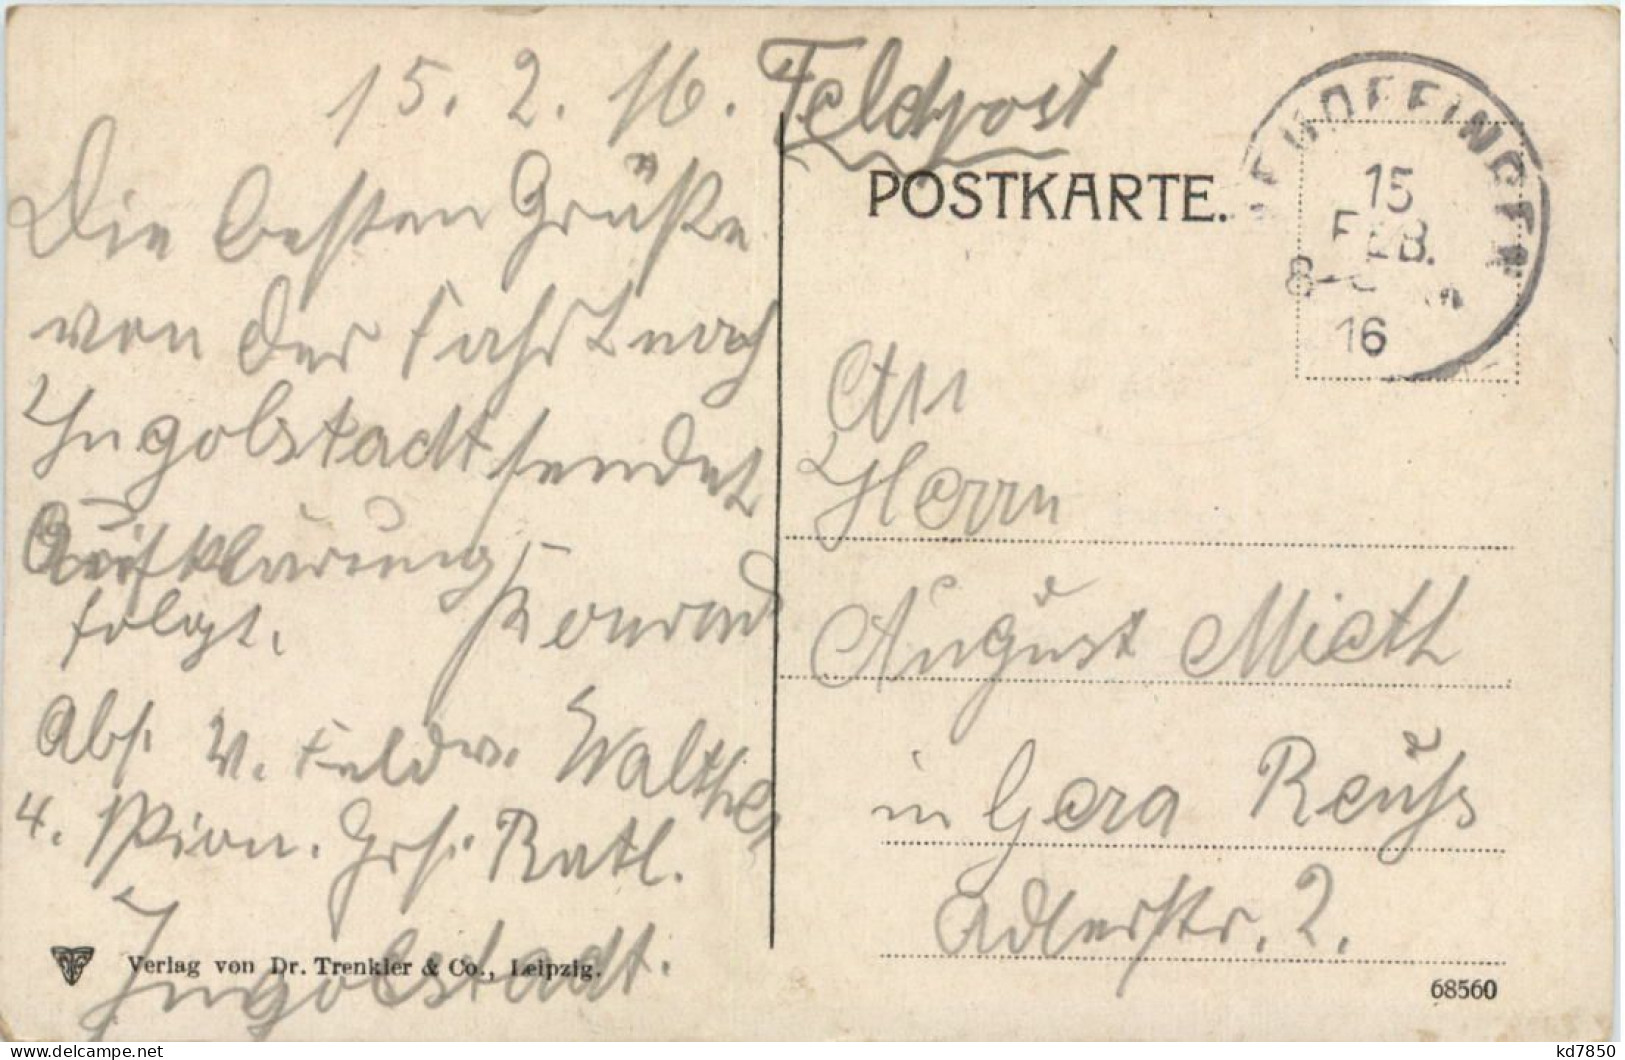 15. 2. 16. Feldpost
POSTKARTE.
15
FEB.
16
Die besten Grüße
von der Fahrt nach
Ingolstadt sendet
Aufklärung
folgt. Konrad
Abs. V. Feldw. Walther
4. Pion. Ers. Batl.
Ingolstadt.
An
Herrn
August Mieth
in Gera Reuß
Adlerstr. 2.
Verlag von Dr. Trenkler & Co., Leipzig.
68560
kd7850